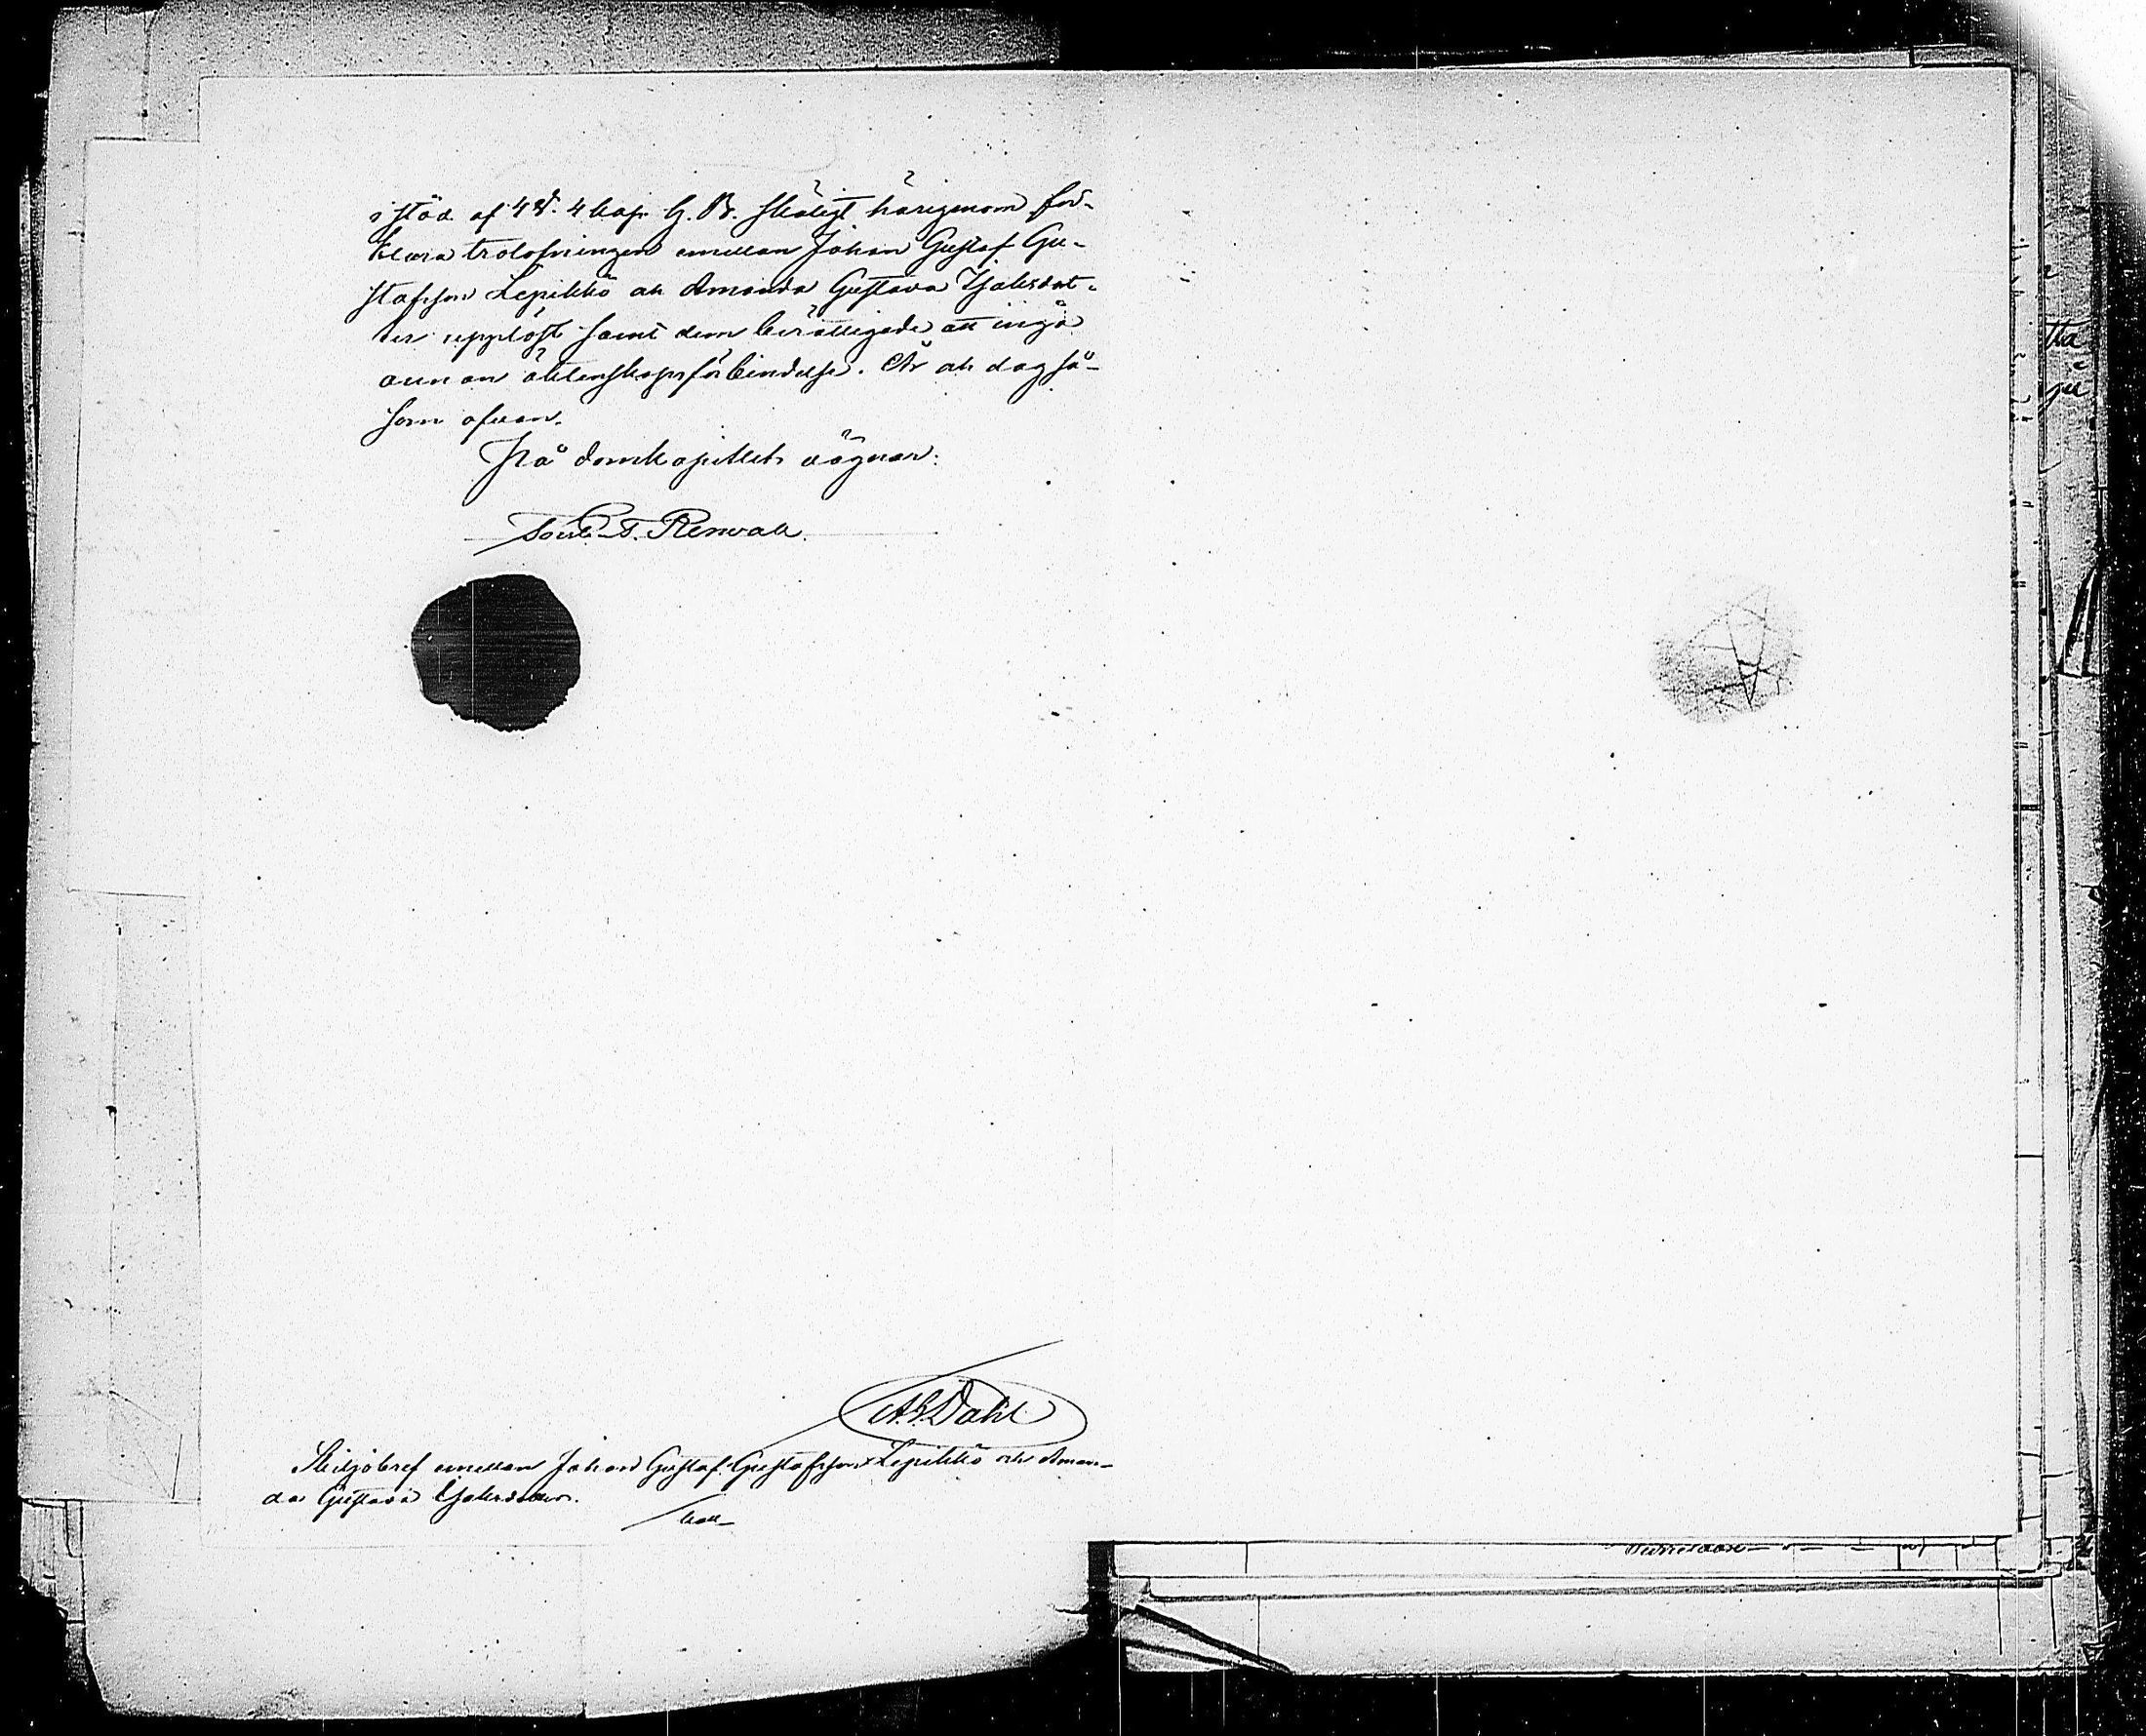 i stöd af 4 §. 4 kap. G. B. skäligt härigenom för-
klara trolofningen emellan Johan Gustaf Gu-
stafsson Lepikkö och Amanda Gustava Isaksdot-
ter upplöst samt dem berättigade att ingå
annan äktenskapsförbindelse. År och dag så-
som ofvan.
På domkapitlets vägnar:
T. T. Renvall.
A. G. Dahl
Skiljobref emellan Johan Gustaf Gustafsson Lepikkö och Aman-
da Gustava Isaksdotter.